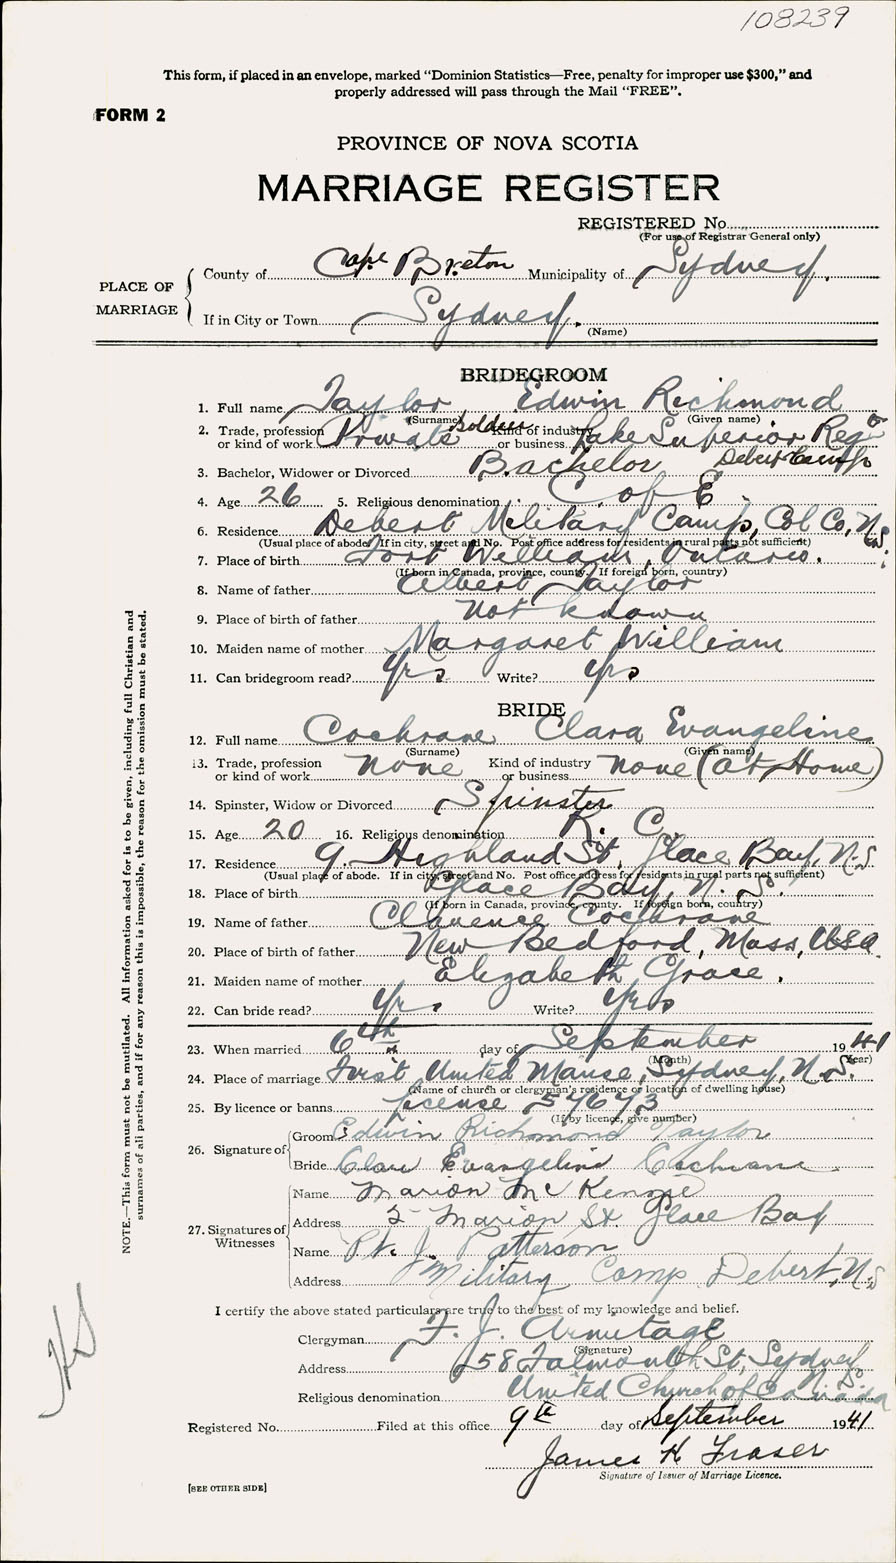 108239
This form, if placed in an envelope, marked "Dominion Statistics—Free, penalty for improper use $300," and
properly addressed will pass through the Mail "FREE".
FORM 2
PROVINCE OF NOVA SCOTIA
MARRIAGE REGISTER
REGISTERED No.
(For use of Registrar General only)
PLACE OF MARRIAGE
County of Cape Breton Municipality of Sydney.
If in City or Town Sydney.
(Name)
BRIDEGROOM
1. Full name Taylor Edwin Richmond
(Surname) (Given name)
2. Trade, profession or kind of work Private Soldier Kind of industry or business Lake Superior Regt Debert Camp
3. Bachelor, Widower or Divorced Bachelor
4. Age 26 5. Religious denomination C. of E.
6. Residence Debert Military Camp, Col Co, N.S.
(Usual place of abode. If in city, street and No. Post office address for residents in rural parts not sufficient)
7. Place of birth Fort William, Ontario.
(If born in Canada, province, county. If foreign born, country)
8. Name of father Albert Taylor
9. Place of birth of father not known
10. Maiden name of mother Margaret William
11. Can bridegroom read? Yes Write? Yes
BRIDE
12. Full name Cochrane Clara Evangeline
(Surname) (Given name)
13. Trade, profession or kind of work none Kind of industry or business none (at Home)
14. Spinster, Widow or Divorced Spinster
15. Age 20 16. Religious denomination R. C.
17. Residence 9. Highland St, Glace Bay, N.S.
(Usual place of abode. If in city, street and No. Post office address for residents in rural parts not sufficient)
18. Place of birth Glace Bay, N. S.
(If born in Canada, province, county. If foreign born, country)
19. Name of father Clarence Cochrane
20. Place of birth of father New Bedford, Mass, USA.
21. Maiden name of mother Elizabeth Grace.
22. Can bride read? Yes Write? Yes
23. When married 6th day of September 1941
(Month) (Year)
24. Place of marriage First United Manse, Sydney, N.S.
(Name of church or clergyman's residence or location of dwelling house)
25. By licence or banns license 57673
(If by licence, give number)
26. Signature of
Groom Edwin Richmond Taylor
Bride Clara Evangeline Cochrane
27. Signatures of Witnesses
Name Marion McKenzie
Address 2 Marion St Glace Bay
Name Pt. J. Patterson
Address Military Camp Debert, N.S
I certify the above stated particulars are true to the best of my knowledge and belief.
Clergyman F. J. Armitage
(Signature)
Address 58 Falmouth St, Sydney N.S.
Religious denomination United Church of Canada
Registered No. Filed at this office 9th day of September 1941
James H Fraser
Signature of Issuer of Marriage Licence.
[SEE OTHER SIDE]
NOTE.—This form must not be mutilated. All information asked for is to be given, including full Christian and
surnames of all parties, and if for any reason this is impossible, the reason for the omission must be stated.